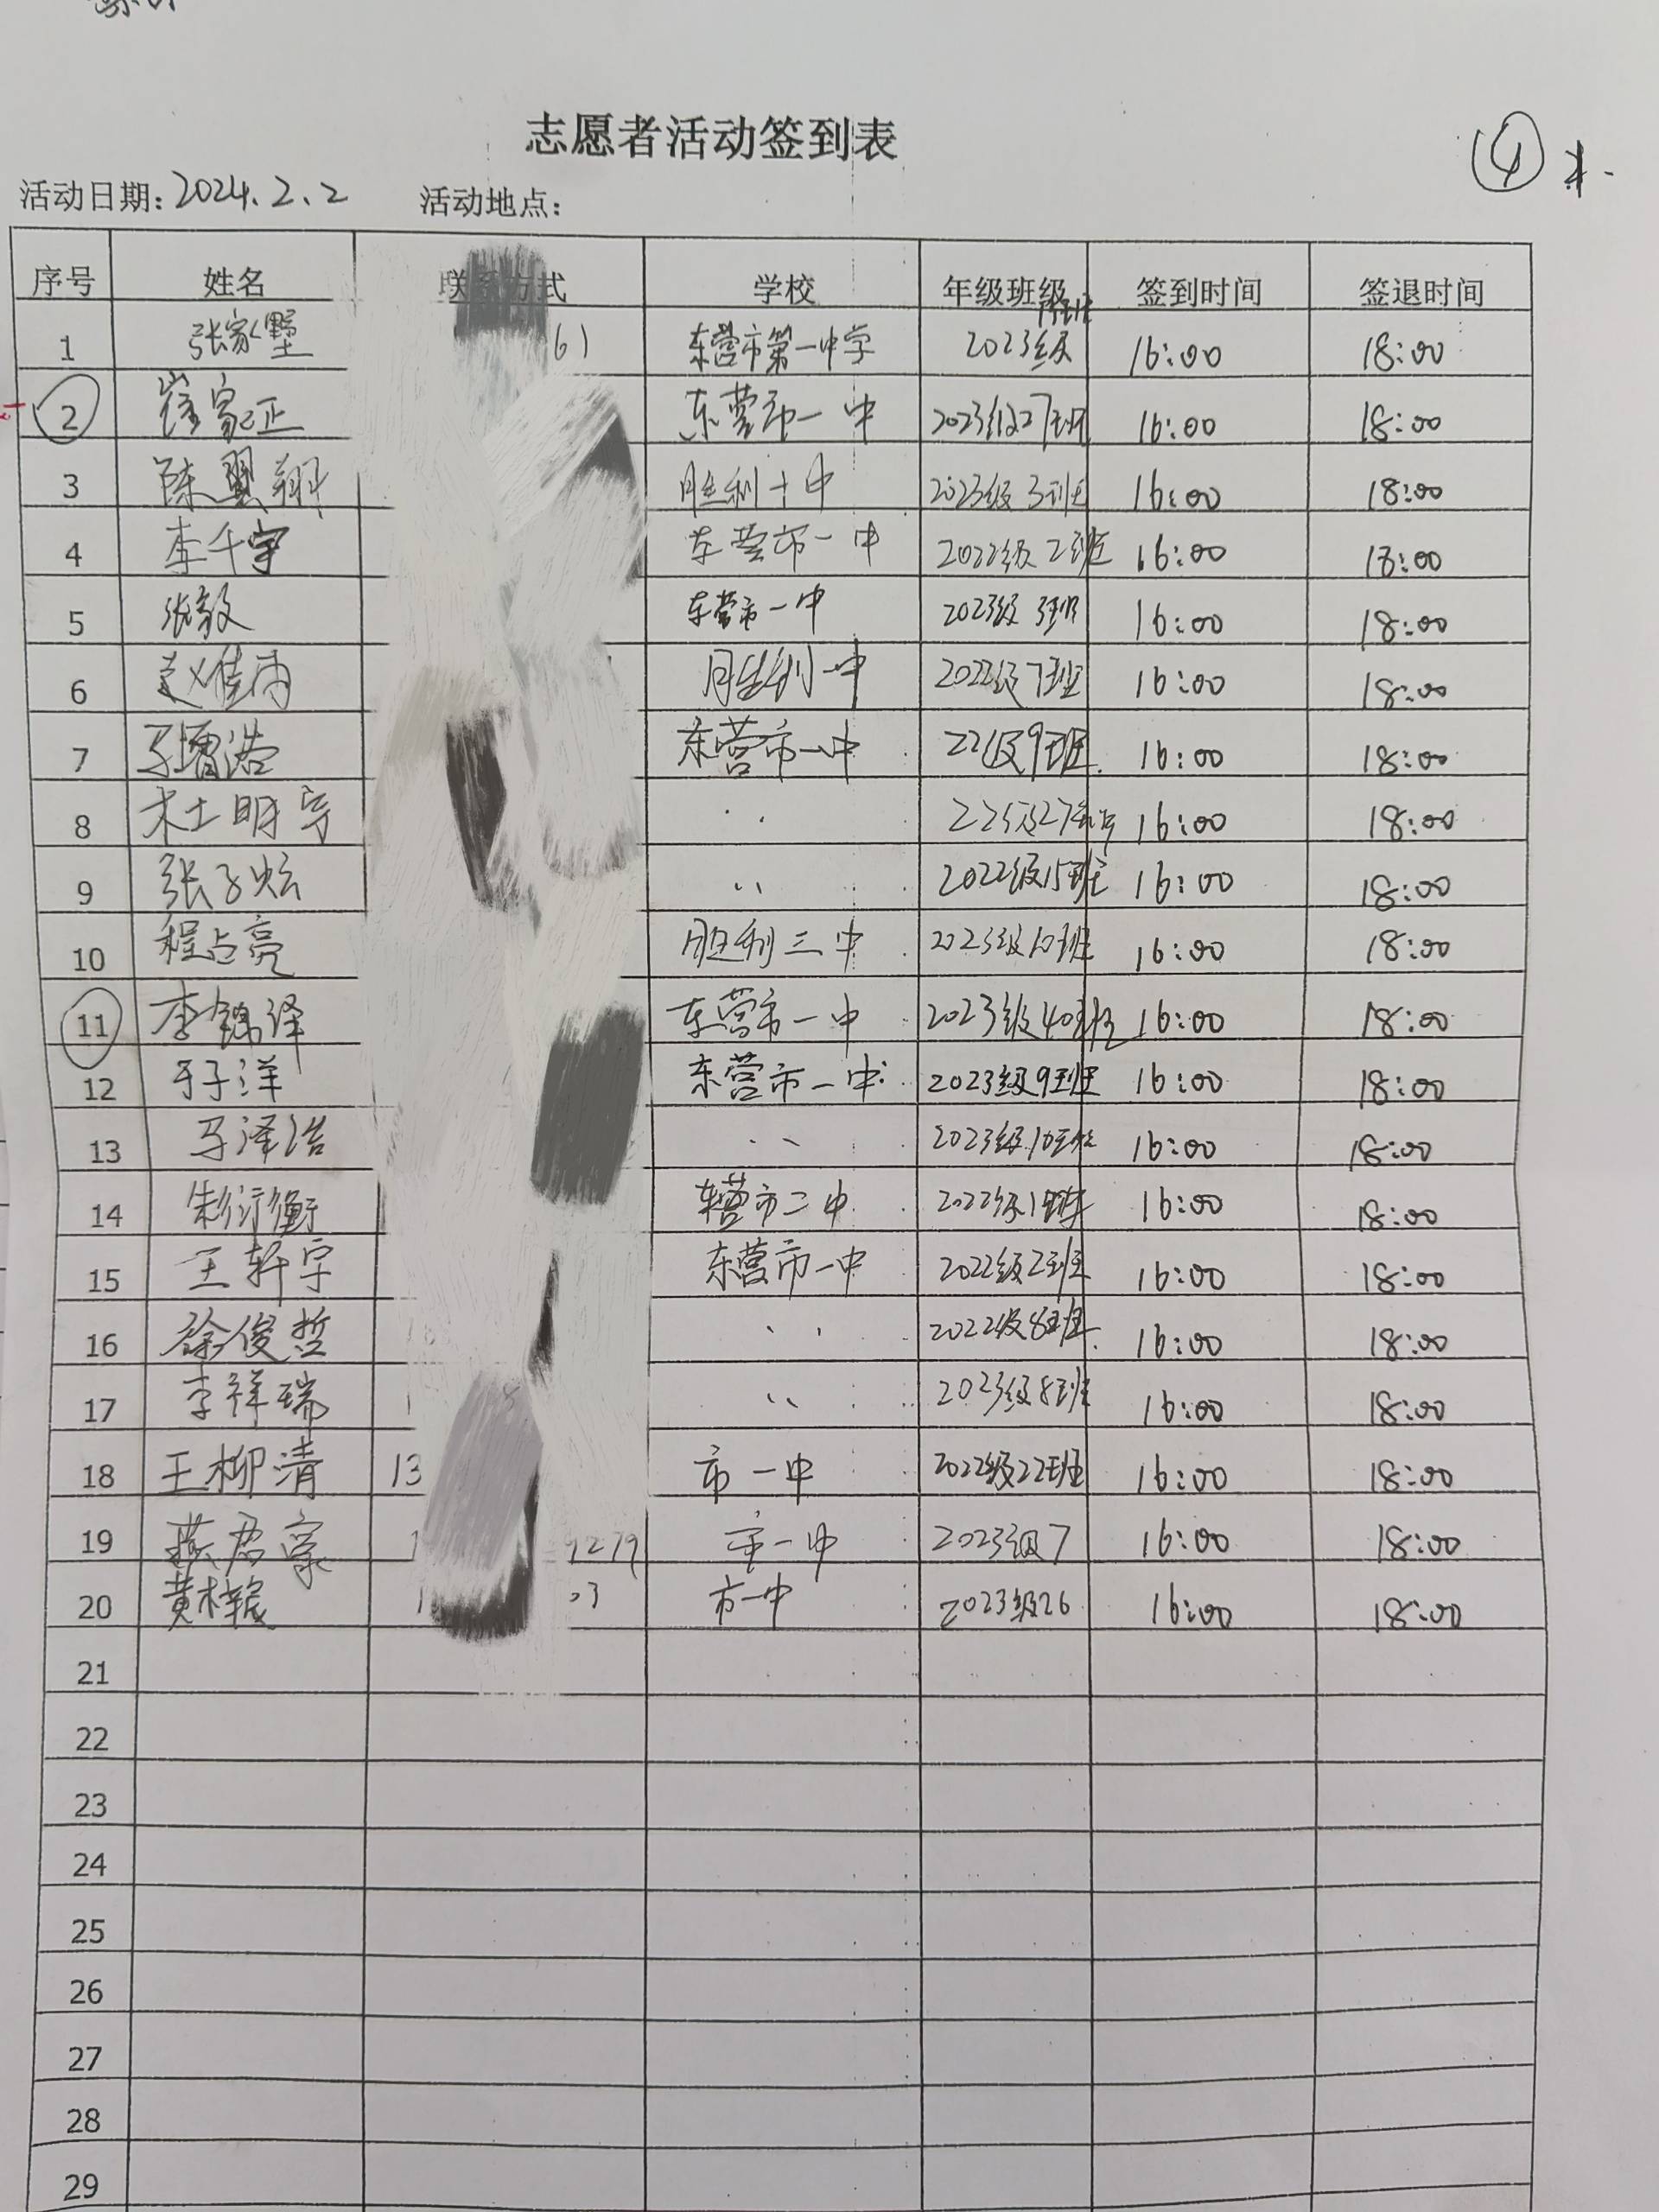 志愿者活动签到表
④
活动日期：2024.2.2 活动地点：
序号 姓名 联系方式 学校 年级班级 签到时间 签退时间
1 张家墅 61 东营市第一中学 2023级 16:00 18:00
2 崔家正 东营市一中 2023级27班 16:00 18:00
3 陈翼翔 胜利十中 2023级3班 16:00 18:00
4 李千宇 东营市一中 2022级2班 16:00 18:00
5 张毅 东营市一中 2023级 16:00 18:00
6 赵佳雨 胜利一中 2022级7班 16:00 18:00
7 马增浩 东营市一中 22级9班 16:00 18:00
8 杜明宇 22级27班 16:00 18:00
9 张子炫 2022级15班 16:00 18:00
10 程占亮 胜利三中 2023级10班 16:00 18:00
11 李锦泽 东营市一中 2023级40班 16:00 18:00
12 于子洋 东营市一中 2023级9班 16:00 18:00
13 马泽浩 2023级10班 16:00 18:00
14 朱衍衡 东营市二中 2022级 16:00 18:00
15 王轩宇 东营市一中 2022级2班 16:00 18:00
16 徐俊哲 2022级8班 16:00 18:00
17 李祥瑞 2023级8班 16:00 18:00
18 王柳清 13 市一中 2022级22班 16:00 18:00
19 燕君豪 1 1279 市一中 2023级7 16:00 18:00
20 黄梓宸 1 03 市一中 2023级26 16:00 18:00
21
22
23
24
25
26
27
28
29